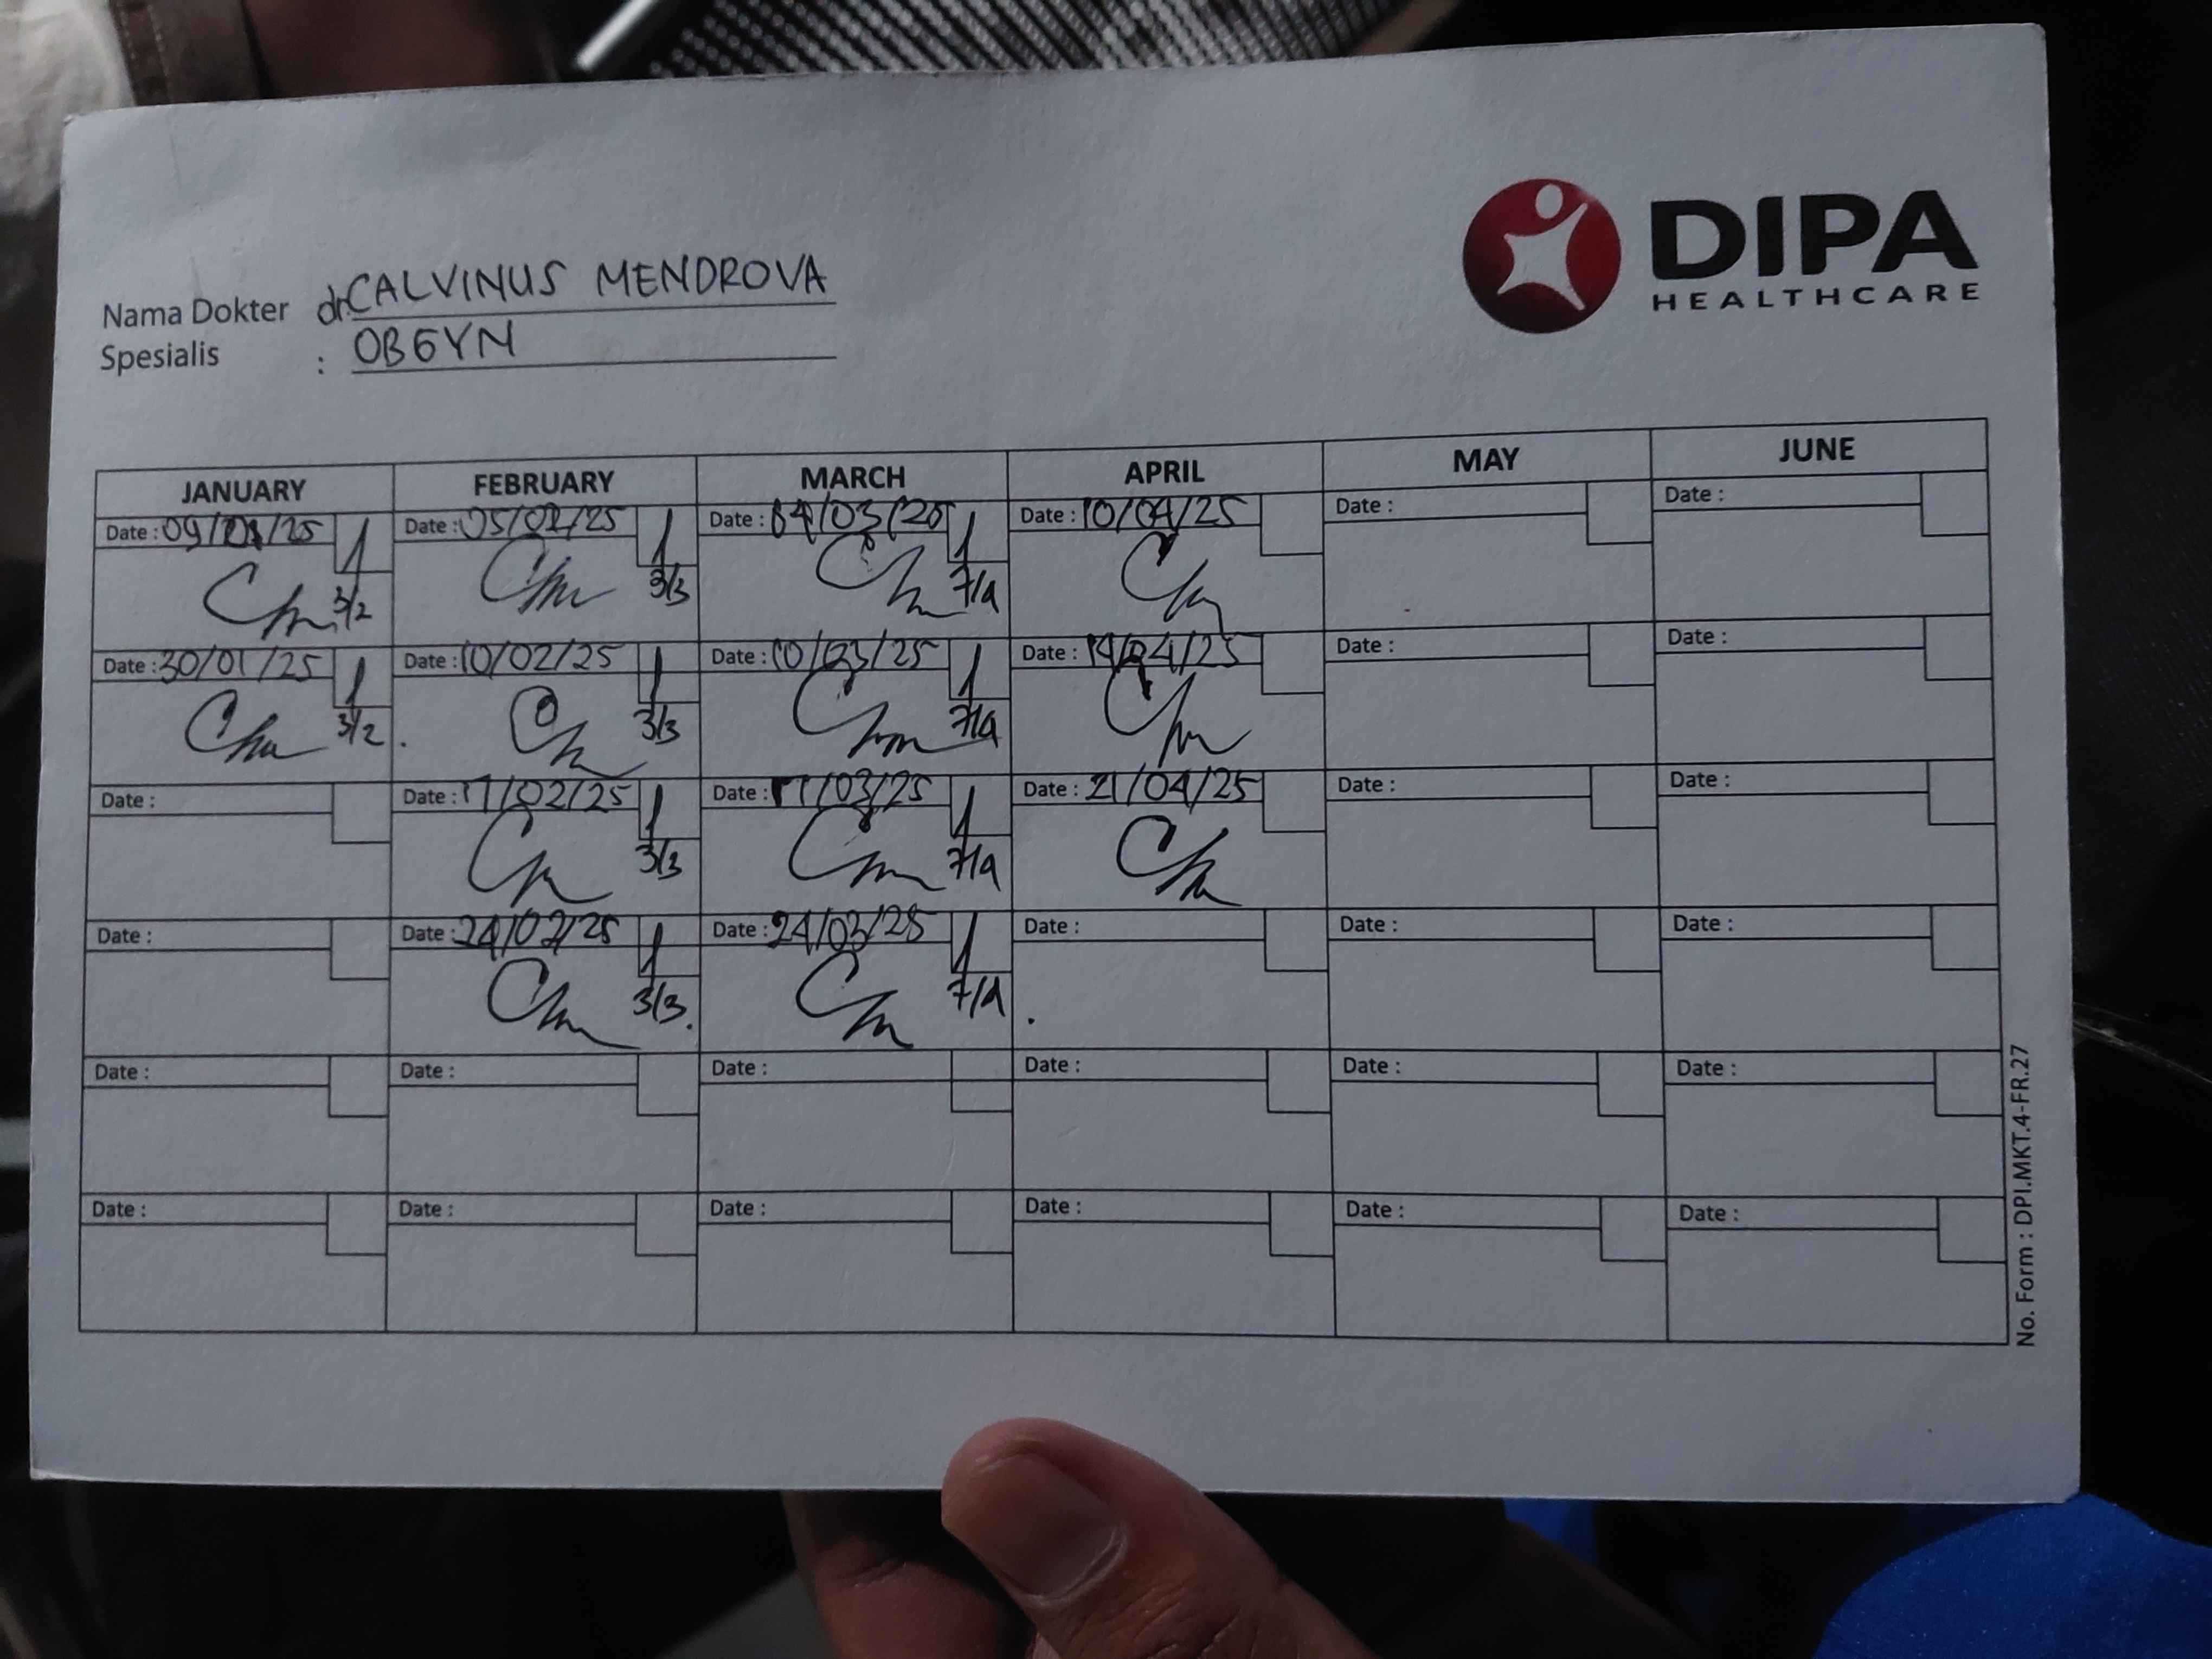 DIPA
HEALTHCARE
Nama Dokter dr. CALVINUS MENDROVA
Spesialis : OBGYN
JANUARY FEBRUARY MARCH APRIL MAY JUNE
Date : 09/01/25 Date : 05/02/25 Date : 04/03/25 Date : 10/04/25 Date : Date :
3/2 3/3 7/4
Date : 30/01/25 Date : 10/02/25 Date : 10/03/25 Date : 14/04/25 Date : Date :
3/2 3/3 7/4
Date : Date : 17/02/25 Date : 17/03/25 Date : 21/04/25 Date : Date :
3/3 7/4
Date : Date : 24/02/25 Date : 24/03/25 Date : Date : Date :
3/3 7/4
Date : Date : Date : Date : Date : Date :
Date : Date : Date : Date : Date : Date :
No. Form : DPI.MKT.4-FR.27